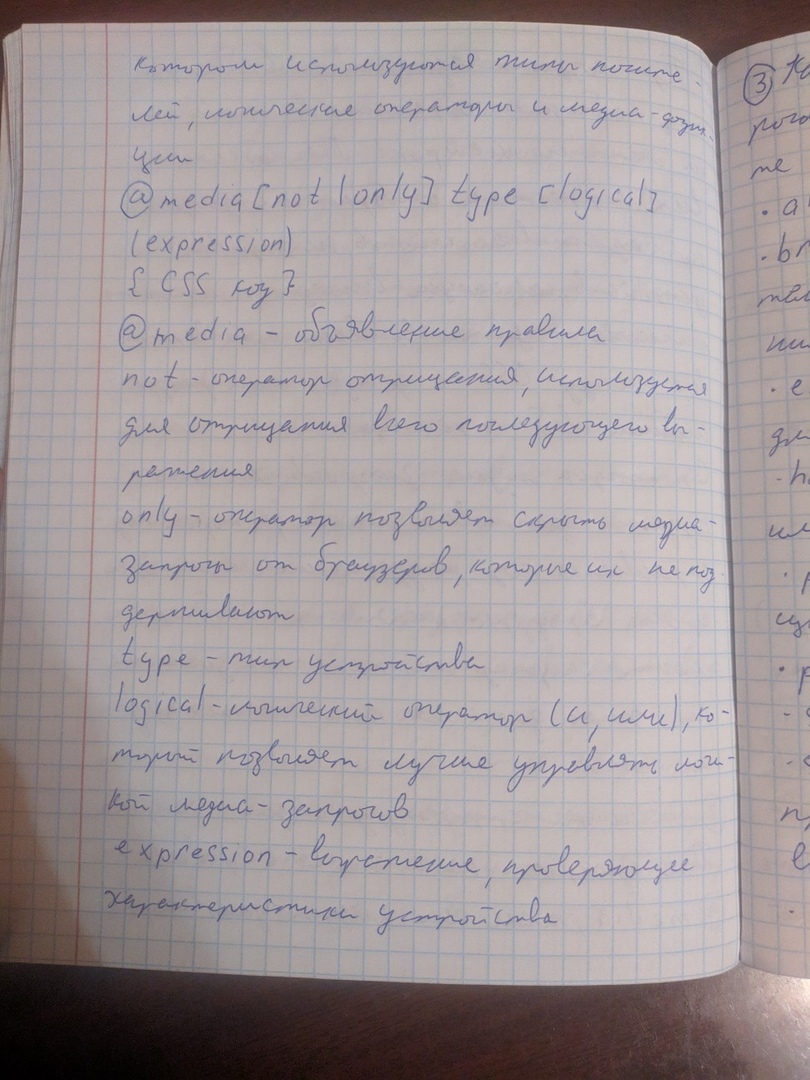 котором используются типы носите-
лей, логические операторы и медиа-функ-
ции
@media [not | only] type [logical]
(expression)
{ CSS код }
@media - объявление правила
not - оператор отрицания, используется
для отрицания всего последующего вы-
ражения
only - оператор позволяет скрыть медиа-
запросы от браузеров, которые их не под
держивают
type - тип устройства
logical - логический оператор (и, или), ко-
торый позволяет лучше управлять логи-
кой медиа-запросов
expression - выражение, проверяющее
характеристики устройства
3
рого
те
· a
· br
тел
· e
дл
- h
ил
· p
· p